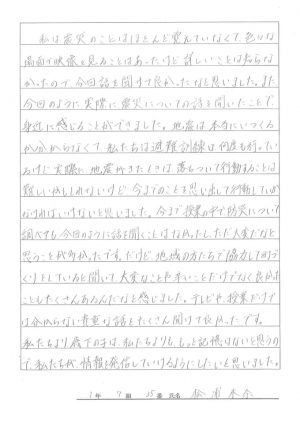 私は震災のことはほとんど覚えていなくて、色々な
場面で映像を見ることはあったけど詳しいことは知らな
かったので、今回話を聞けて良かったなと思いました。また
今回のように実際に震災についての話を聞いたことで、
身近に感じることができました。地震は本当にいつくる
か分からなくて、私たちは避難訓練は何度も行ってい
るけど実際に地震がきたときは落ちついて行動することは
難しいかもしれないけど今までのことを思い出して行動していか
なければいけないと思いました。今まで授業の中で防災について
調べても今回のように話を聞くことはなかったしただ大変だなと
思うことが多かったです。だけど地域の方たちで協力して町づ
くりをしていると聞いて大変なことや辛いことだけでなく良かったこ
ともたくさんあるんだなと感じました。テレビや授業だけで
は分からない貴重な話をたくさん聞けて良かったです。
私たちより歳下の子は、私たちよりも、もっと記憶はないと思うの
で、私たちが情報を発信していけるようにしたいと思いました。
1年 7組 25番 氏名